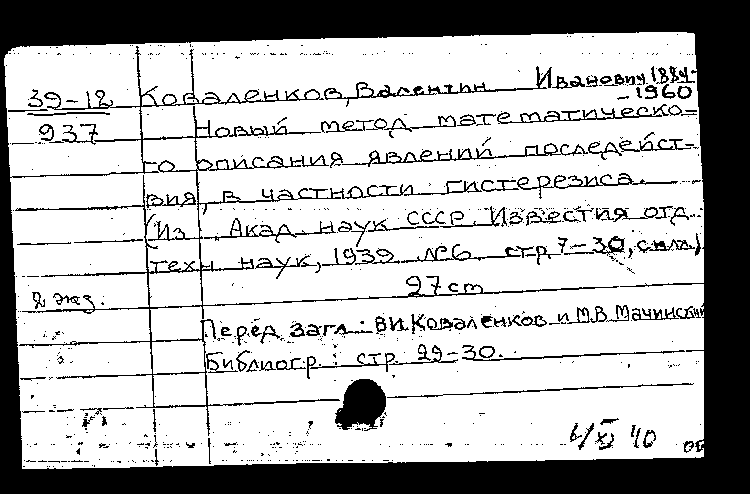 39-12 Коваленков, Валентин Иванович 1884-
1960
937 Новый метод математическо=
го описания явлений последейст-
вия, в частности гистерезиса.
(Из Акад. наук СССР. Известия отд.
техн наук, 1939 №6 стр. 7-30, с илл.)
27 cm
2 экз.
Перед загл: В.И. Коваленков и М.В. Мачинский
Библиогр: стр 29-30.
XI 40